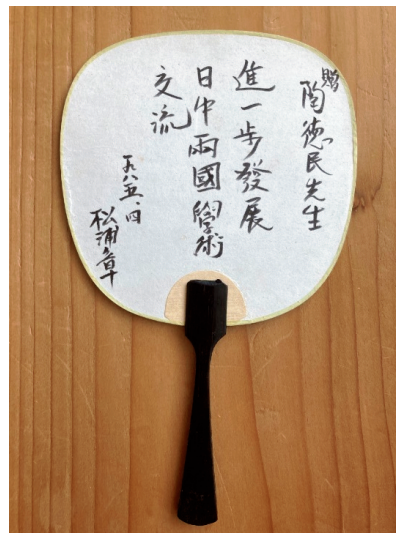 贈陶德民先生
進一步發展
日中兩國學術
交流
一九八五、四
松浦章